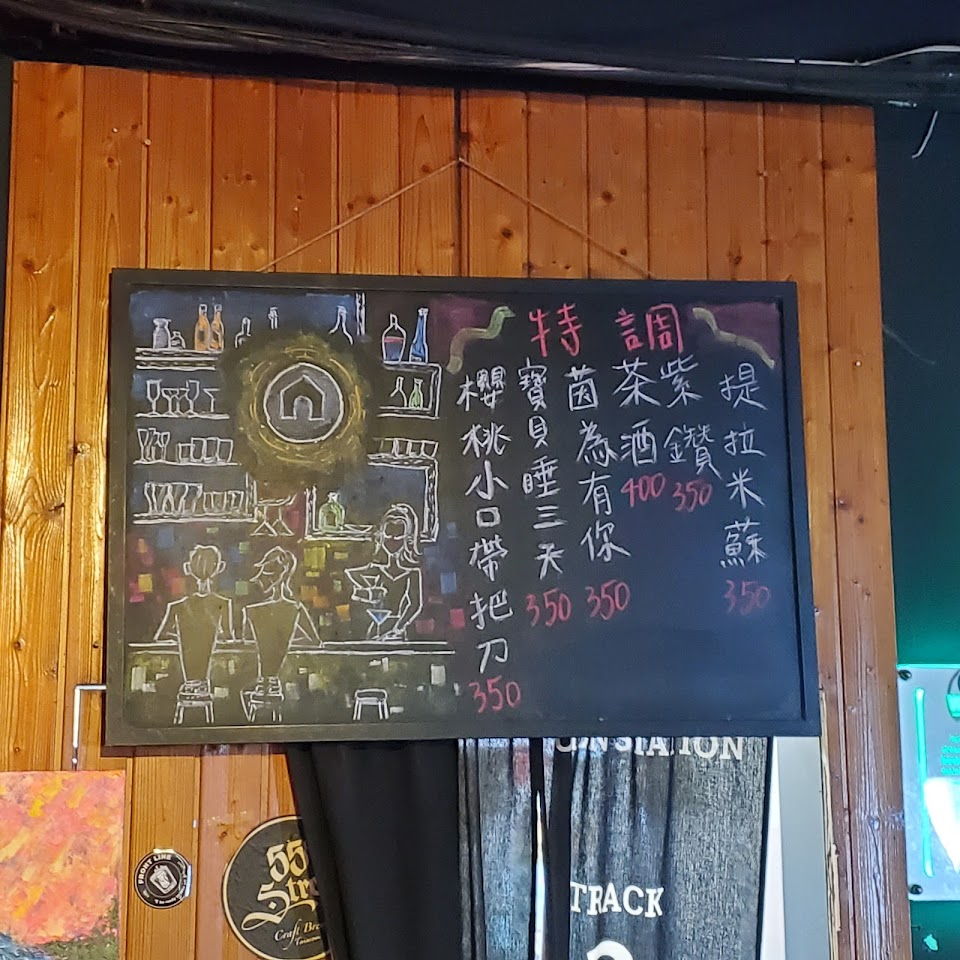 特調
提拉米蘇
350
紫鑽
350
茶酒
400
茵為有你
350
寶貝睡三天
350
櫻桃小口帶把刀
350
TRACK
FRONT LINE
55th
Street
Craft